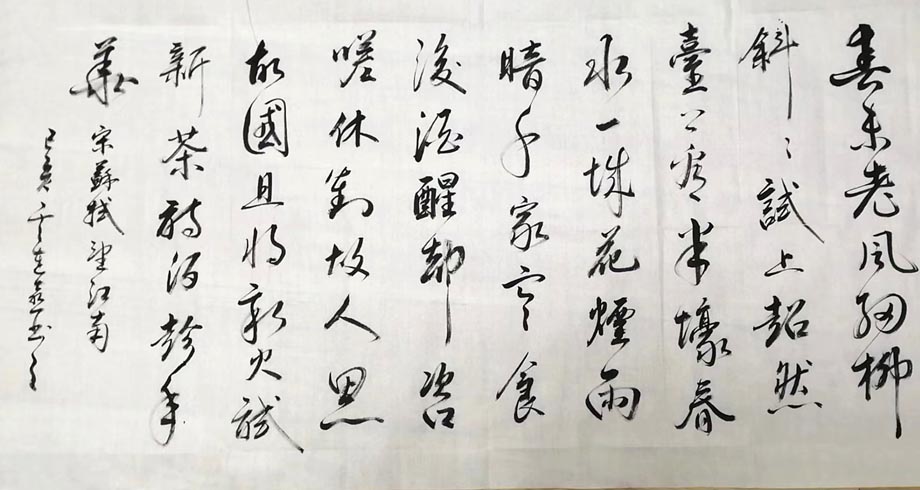 春未老風細柳
斜々試上超然
臺上看半壕春
水一城花煙雨
暗千家寒食
後酒醒卻咨
嗟休對故人思
故國且將新火試
新茶詩酒趁年
華
宋蘇軾望江南
己亥